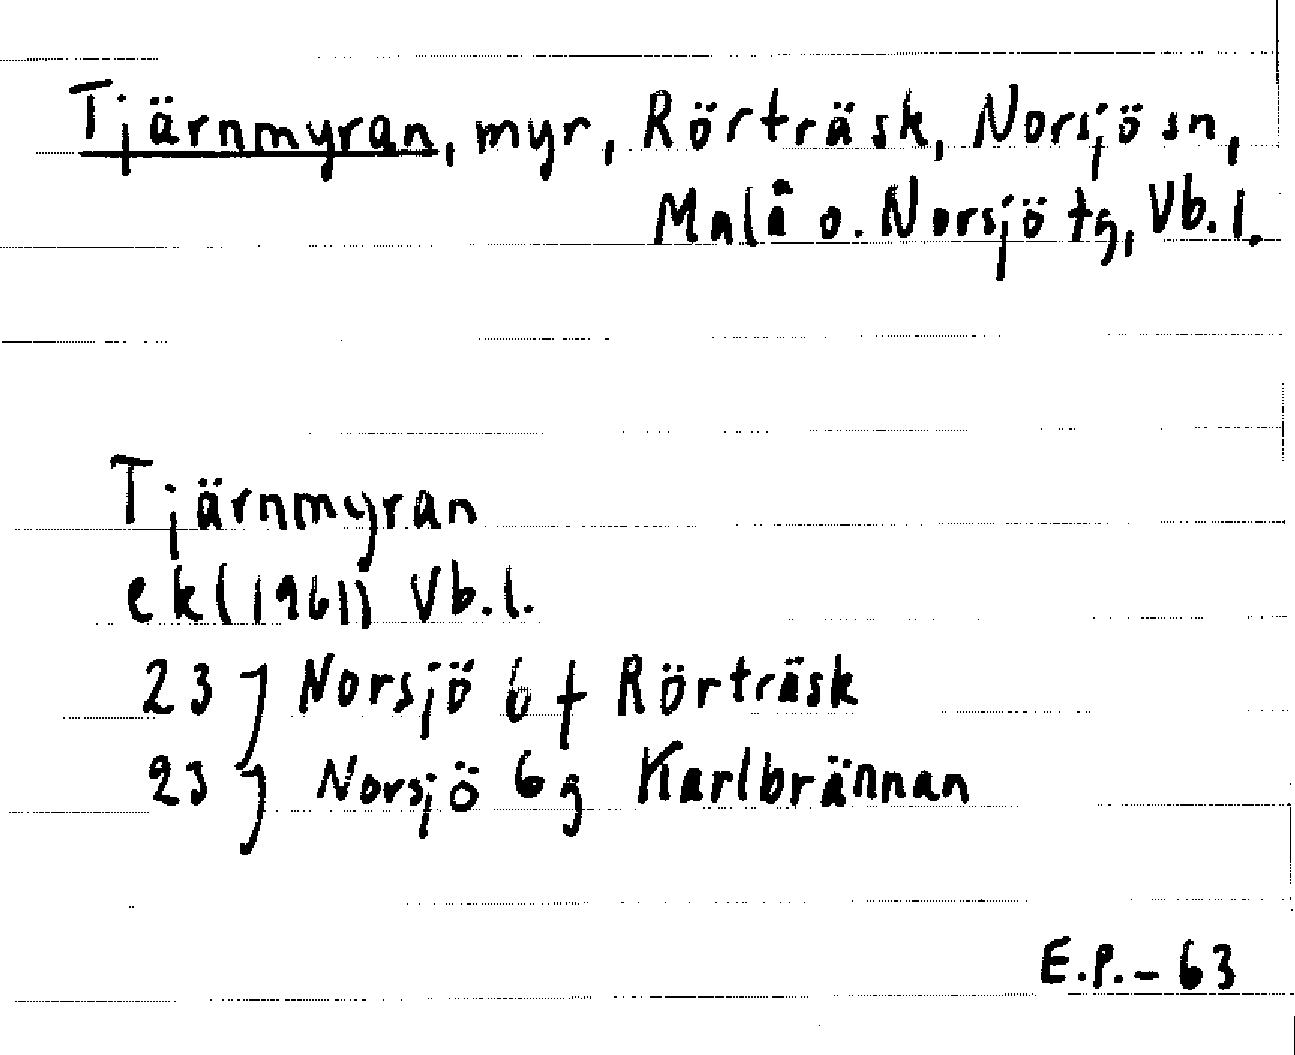 Tjärnmyran, myr, Rörträsk, Norsjö sn,
Malå o. Norsjö tg, Vb. l.
Tjärnmyran
ek (1961) Vb. l.
23 J Norsjö 6 f Rörträsk
23 J Norsjö 6 g Karlbrännan
E.P. - 63